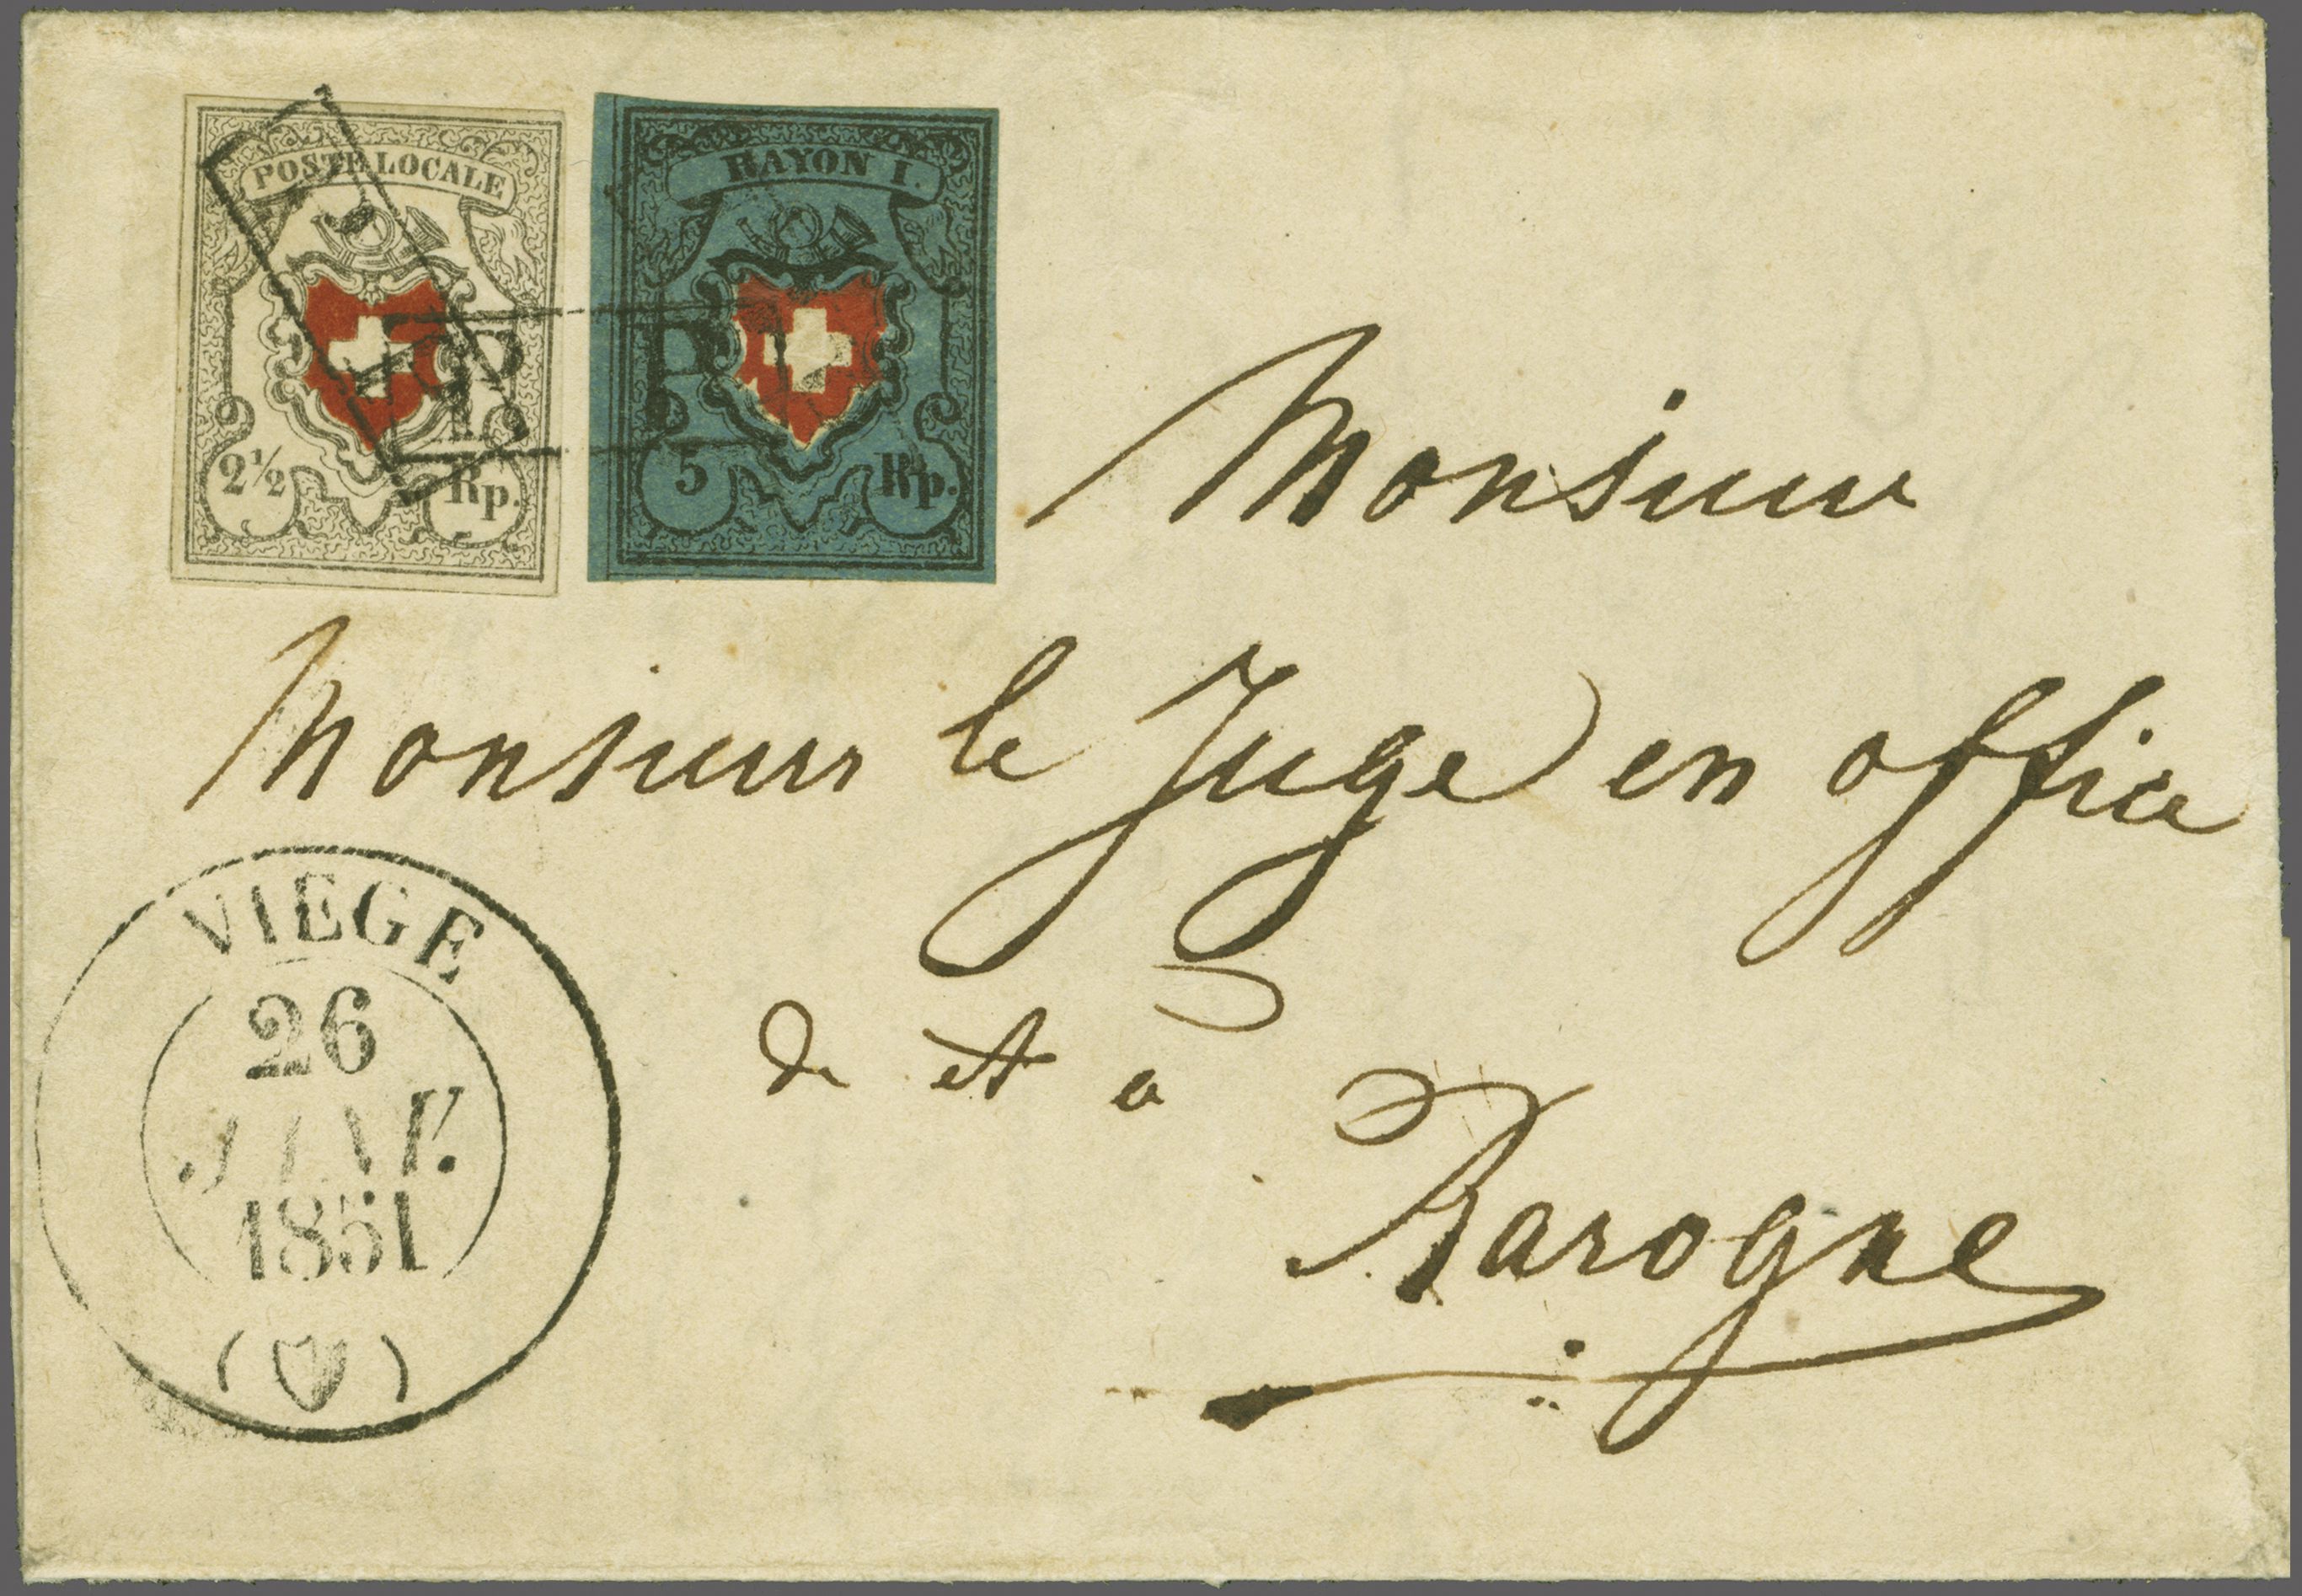 POSTE LOCALE
2½ Rp.
RAYON I.
5 Rp.
P.P.
P.P.
Monsieur
Monsieur le Juge en office
de et a
Rarogne
VIEGE
26
JANV.
1851